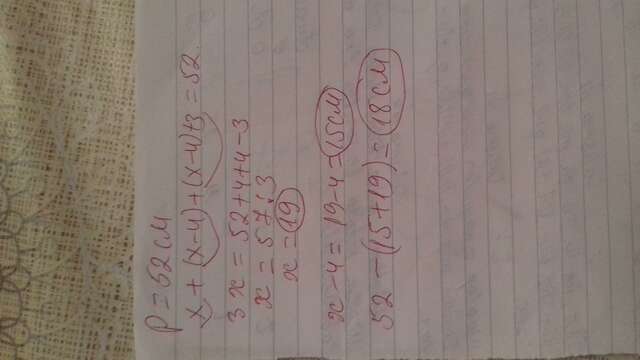 P = 52 см
x + (x-4) + (x-4)+3 = 52.
3x = 52+4+4-3
x = 57:3
x = 19
x-4 = 19-4 = 15 см
52 - (15+19) = 18 см